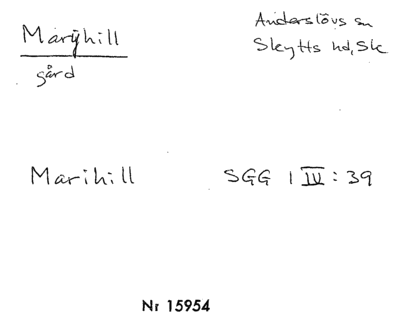 Marÿhill
Anderslövs sn
gård
Skytts hd, Sk
Marihill
SGG 1 IV : 39
Nr 15954